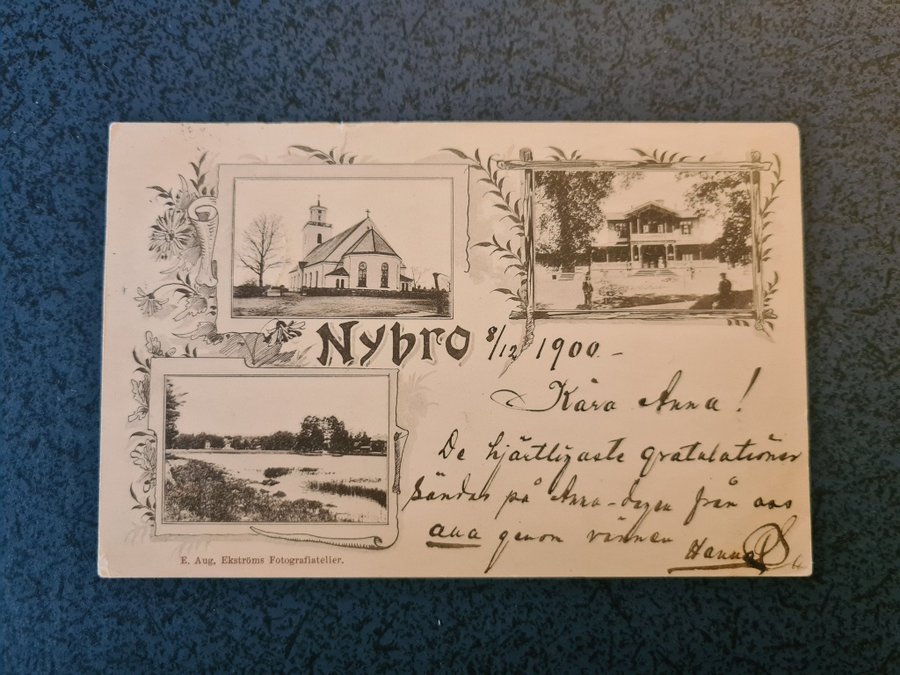 Nybro 8/12 1900 -
Kära Anna!
De hjärtligaste gratulationer
Sändas på Anna-dagen från oss
alla genom vännen
Hanna
E. Aug. Ekströms Fotografiatelier.